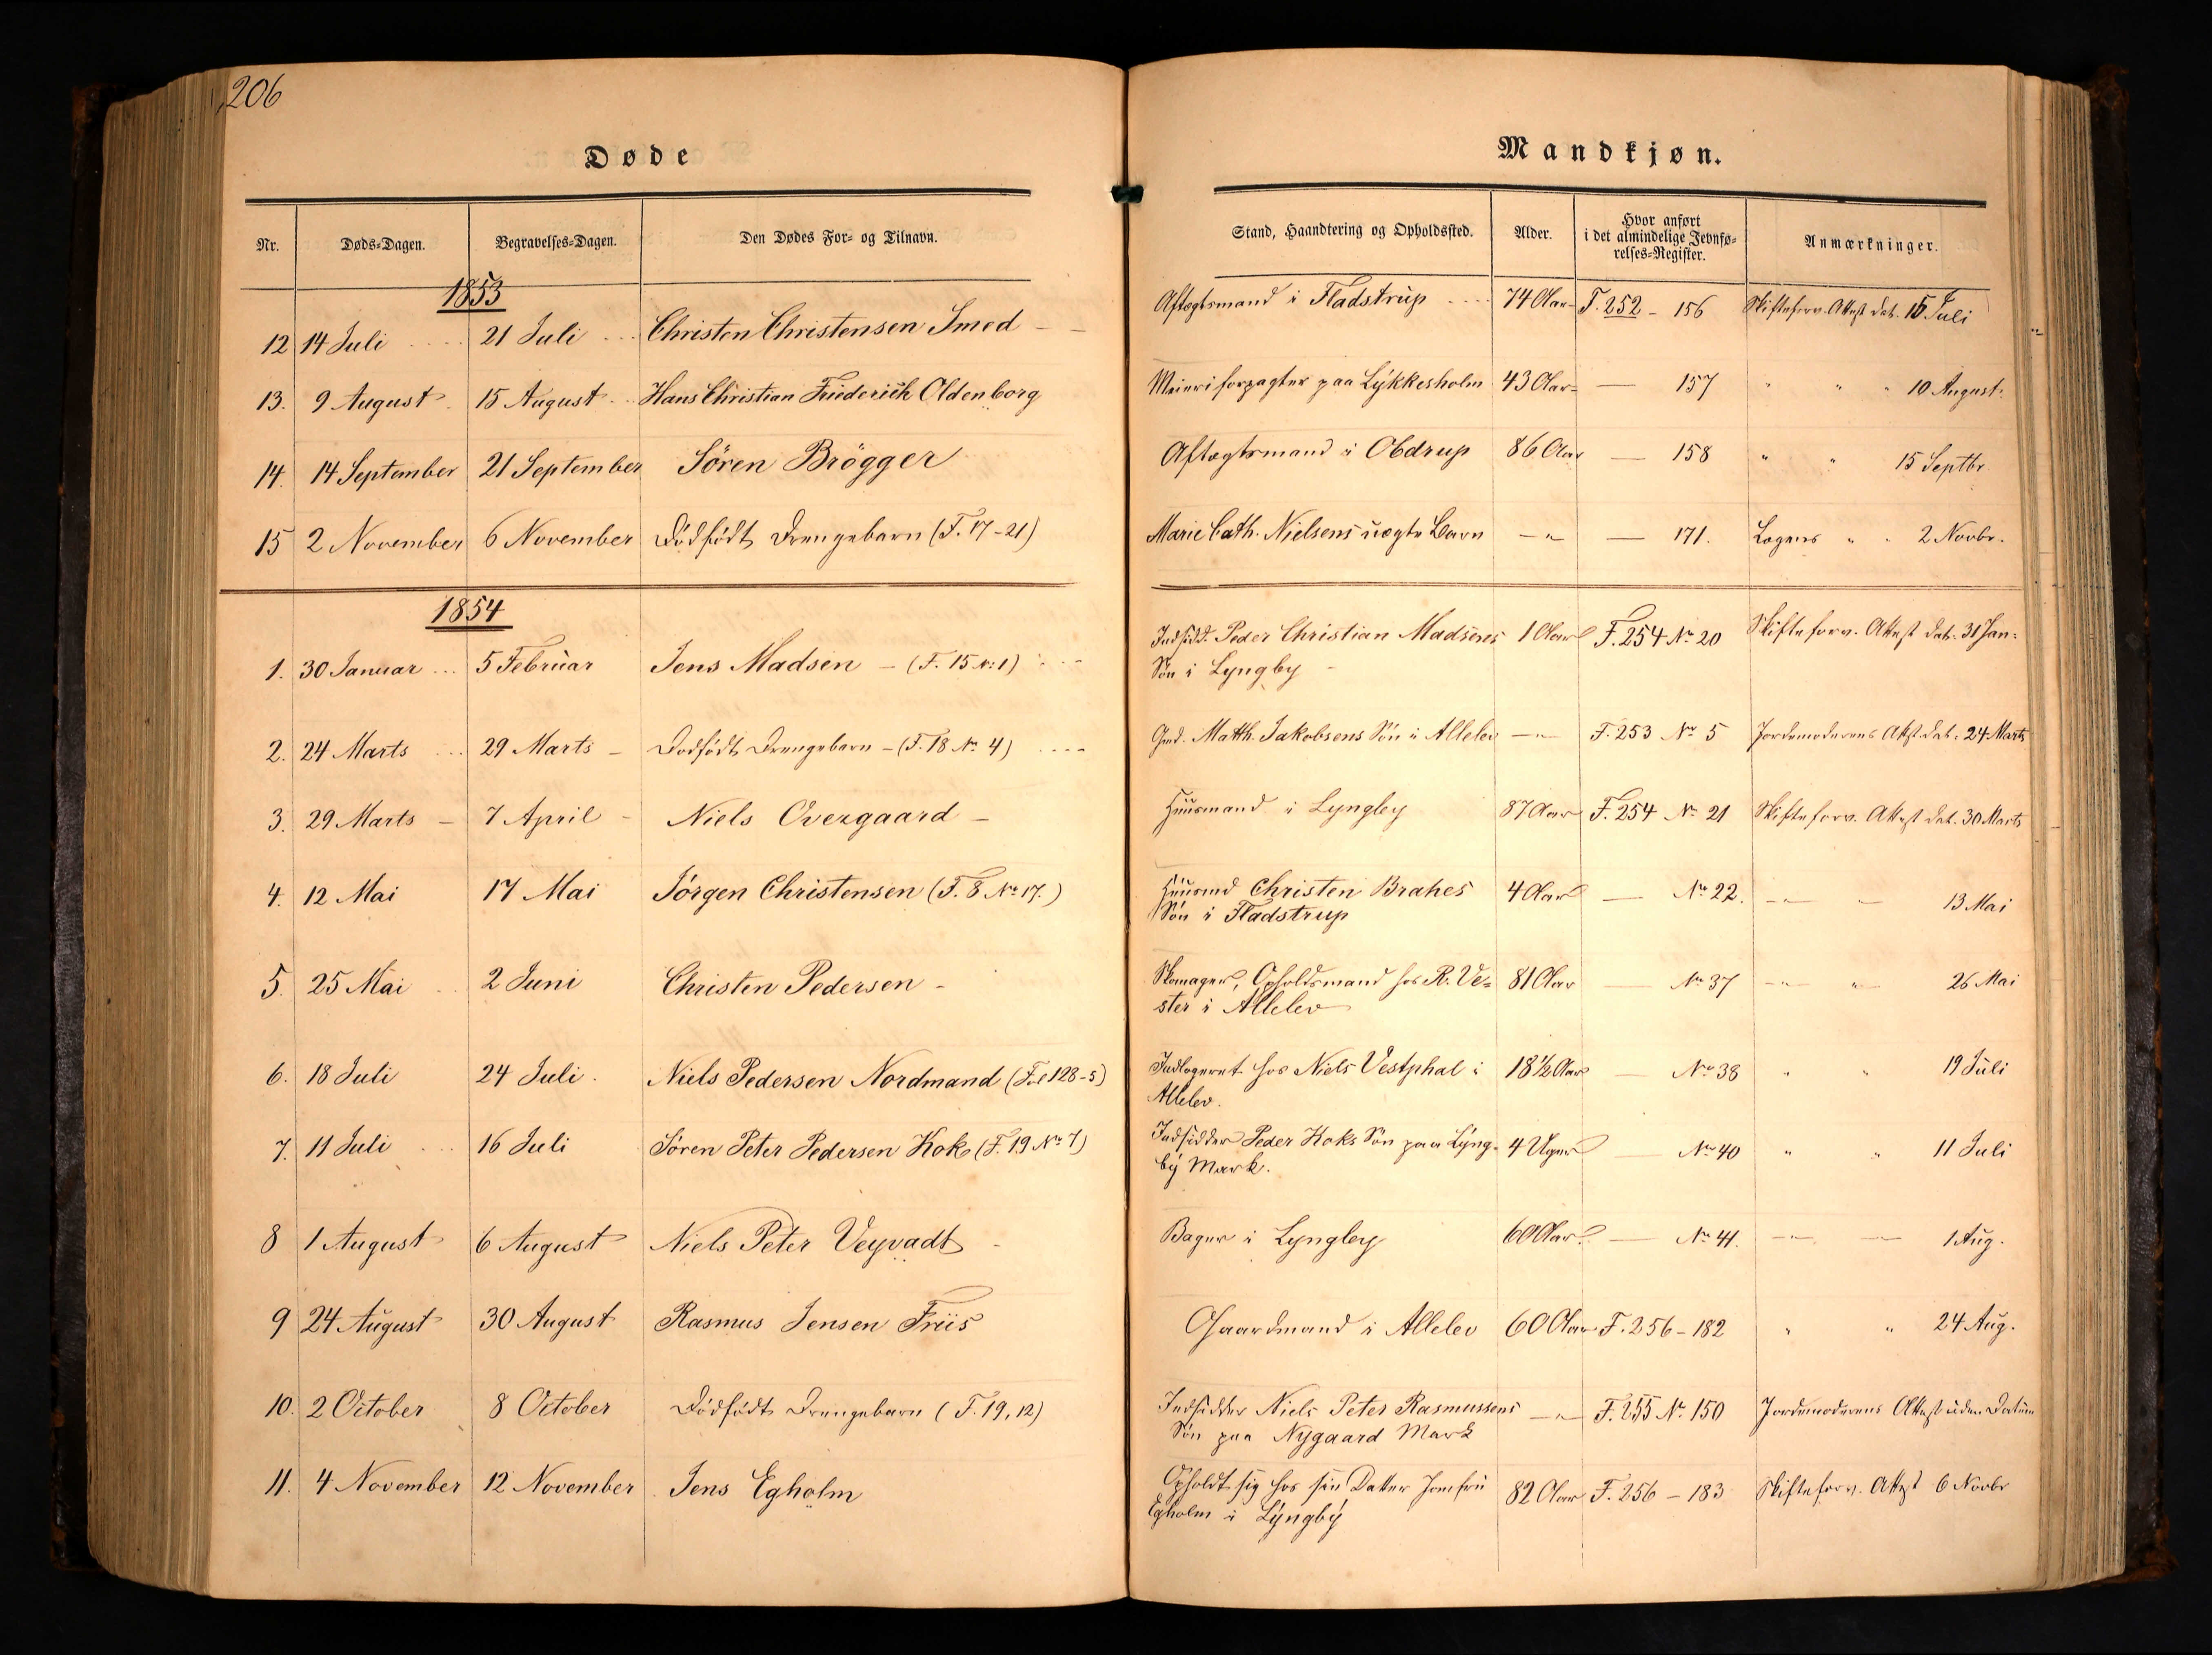 206
Døde
Mandkjøn.
Nr. Døds=Dagen. Begravelses=Dagen. Den Dødes For= og Tilnavn. Stand, Haandtering og Opholdssted. Alder. Hvor anført i det almindelige Jevnfø=relses=Register. Anmærkninger.
1853
12 14 Juli 21 Juli Christen Christensen Smed Aftægtsmand i Fladstrup 74 Aar F. 252 - 156 Skifteforv. Attest dat. 15 Juli
13. 9 August 15 August Hans Christian Friederich Oldenborg Meieriforpagter paa Lykkesholm 43 Aar — 157 " " " 10 August.
14. 14 September 21 September Sören Brögger Aftægtsmand i Obdrup 86 Aar — 158 " " 15 Septbr.
15 2 November 6 November Dödfödt Drengebarn (F. 17-21) Marie Cath. Nielsens uægte Barn —"— — 171. Lægens " " 2 Novbr.
1854
1. 30 Januar 5 Februar Jens Madsen - (F. 15 No 1) Indsidd. Peder Christian Madsens 1 Aar F. 254 No 20 Skifteforv. Attest dat. 31 Jan.
Sön i Lyngby
2. 24 Marts 29 Marts - Dodfödt Drengebarn - (F. 18 No 4) Gmd. Matth. Jakobsens Sön i Allelev —"— F. 253 No 5 Jordemoderens Attst. dat. 24 Marts
3. 29 Marts - 7 April - Niels Overgaard - Huusmand i Lyngby 87 Aar F. 254 No 21 Skifteforv. Attest dat. 30 Marts
4. 12 Mai 17 Mai Jörgen Christensen (F. 8 No 17.) Huusmd Christen Brahes 4 Aar — No 22. —"— — 13 Mai
Sön i Fladstrup
5. 25 Mai 2 Juni Christen Pedersen - Skomager, Opholdsmand hos R. Ve= 81 Aar — No 37 —"— "— 26 Mai
ster i Allelev
6. 18 Juli 24 Juli. Niels Pedersen Nordmand (Fol 128-5) Indlogeret hos Niels Vestphal i 18 1/2 Aar — No 38 " " 19 Juli
Allelev.
7. 11 Juli 16 Juli Sören Peter Pedersen Kok (F. 19 No 7) Indsidder Peder Koks Sön paa Lyng= 4 Uger — No 40 " " 11 Juli
by Mark.
8 1 August 6 August Niels Peter Veyvadt - Bager i Lyngby 60 Aar — No 41. —"— — 1 Aug.
9 24 August 30 August Rasmus Jensen Friis Gaardmand i Allelev 60 Aar F. 256 - 182 " " 24 Aug.
10. 2 October 8 October Dödfödt Drengebarn (F. 19, 12) Indsidder Niels Peter Rasmussens —"— F. 255 No 150 Jordemoderens Attest uden Datum
Sön paa Nygaard Mark
11. 4 November 12 November Jens Egholm Opholdt sig hos sin Datter Jomfru 82 Aar F. 256 - 183 Skifteforv. Attest 6 Novbr
Egholm i Lyngby